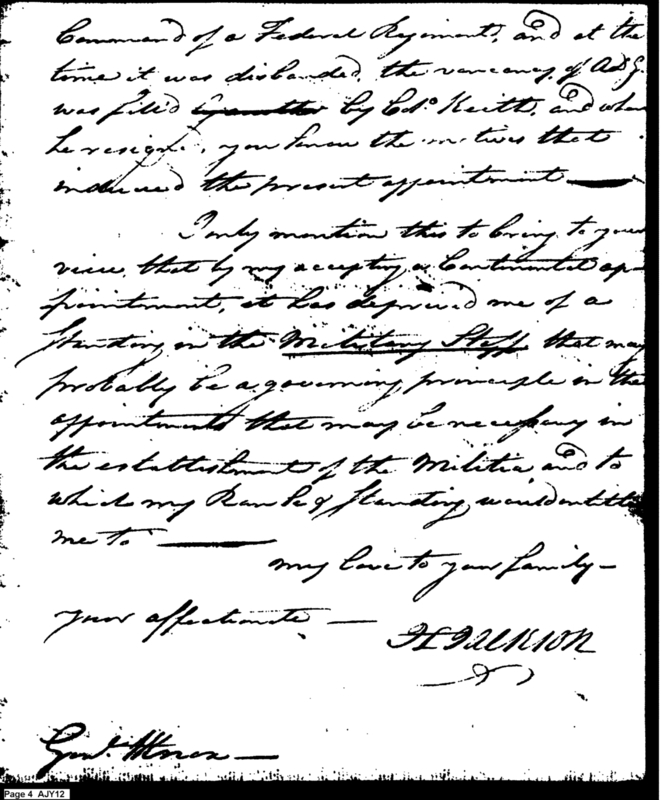 Command of a Federal Regiment, and at the
time it was disbanded, the vacancy of A D G.
was fill'd by another by Colo. Keith, and when
he resign'd, you know the motives that
induced the present appointment —
I only mention this to bring to your
view, that by my accepting a Continental ap-
pointment, it has deprived me of a
Standing in the Military Staff, that may
probably be a governing principle in the
appointments that may be necessary in
the establishment of the Militia, and to
which my Rank & Standing would entitle
me to —
my love to your family —
your affectionate —
H JACKSON
Genl. Knox —
Page 4 AJY12